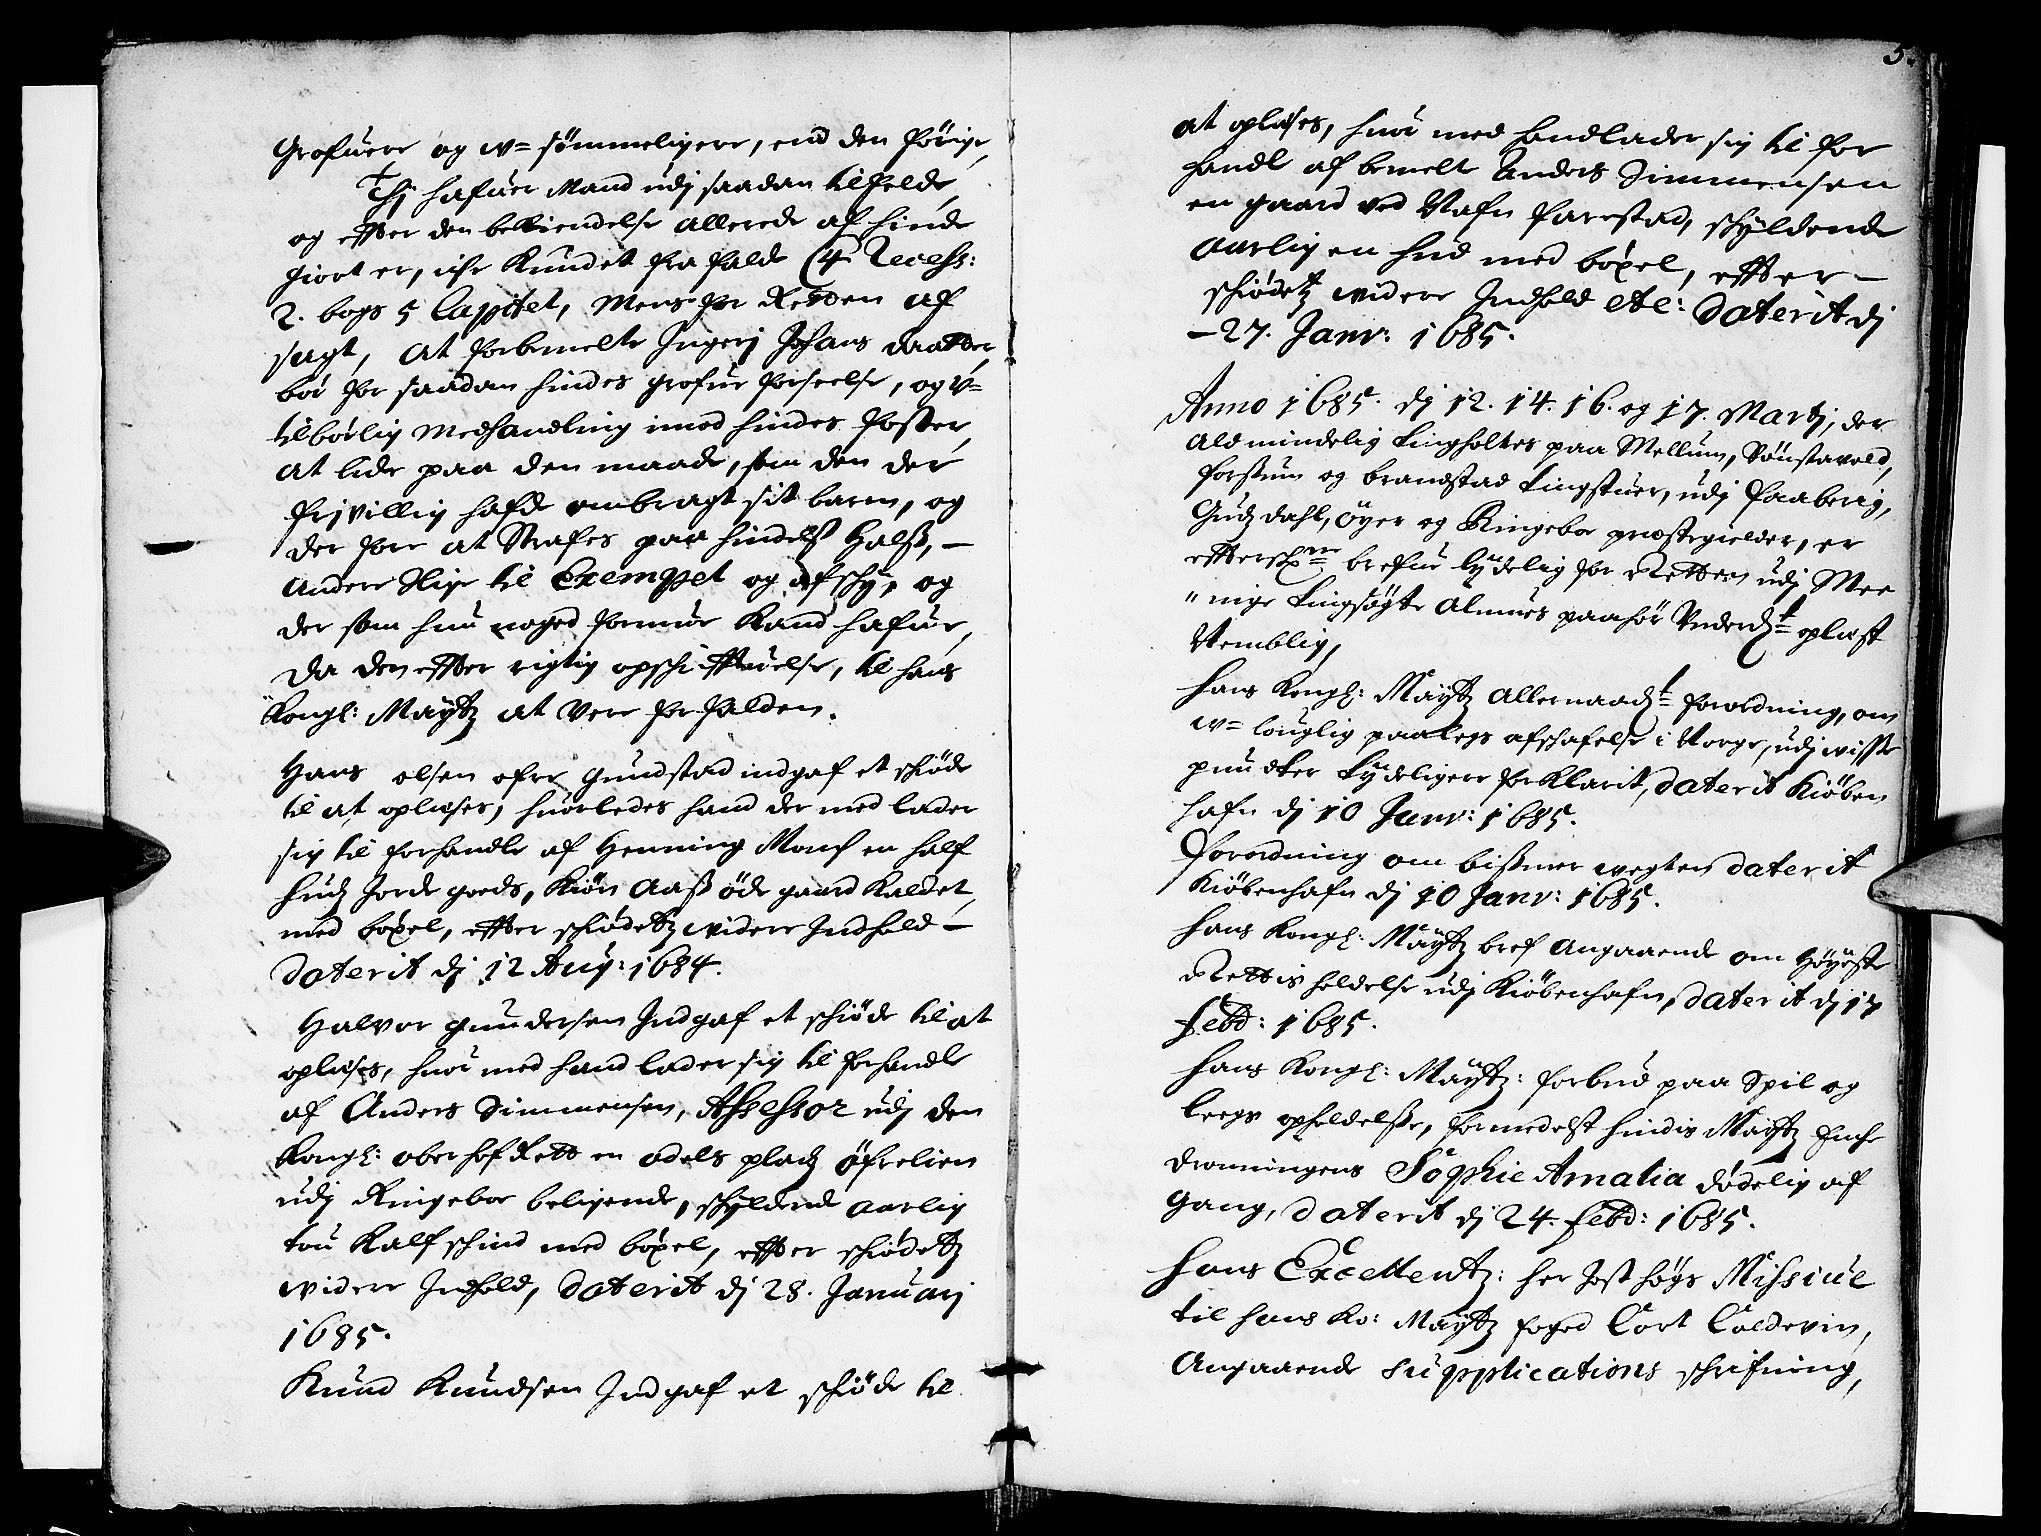 Grofuere og w= sømmeligere, end den forige,
Thj hafuer Mand udj saadan tilfelde,
og efter den bekiendelse allerede af hinde
giort er, icke Kundet fra falde (4 Recess:
2. bogs 5 Capitel, Mens for Retten af
sagt, at forbemelte Ingerj Johans daatter,
bør for saadan hindes grofue forseelse, og v=
tilbørlig Medhandling imod hindes foster,
at lide paa den maade, som den der
frjvillig hafde ombragt sit barn, og
der fore at Straffes paa hindes Halß, –
andere slige til Exempel og afschy, og
der som hun noged formue Kand hafue,
da den efter rigtig opschriffuelse, til hans
Kongl: Maÿtz at Vere forfalden.
Hans olsen ofre Gundstad indgaf et schiøde
til at oplæses, huorledes hand der med lader
sig til forhandle af Henning Munch en half
hudz Jorde goeds, Kiøn Aaß øde gaard Kaldet,
med böxel, efter schiødetz widere Indhold –
daterit dj 12 Aug: 1684.
Halvor gundersen Indgaf et schiøde til at
oplæses, huor med hand lader sig til forhandle
af Anders Simmensen, Assessor udj den
Kongl: ober hof Rett en odels pladz öfrelien
udj Ringeboe beligende, schyldende aarlig
tou Kalfschind med böxel, efter schiødetz
widere Indhold, daterit dj 28. Januarj
1685.
Knud Knudsen Indgaf et schiøde til
5.
at oplæses, huor med hand lader sig til for
handl af bemelt Anders Simmensen
en gaard ved Nafn farestad, schyldende
aarlig en hud med böxel, efter –
schiødetz widere Indhold etc: daterit dj
– 27. Janv: 1685.
Anno 1685. dj 12. 14. 16. og 17. Martj, der
aldmindelig tingholtes paa Mellum, Rönstavold,
forstum og brandstad tingstuer, udj Faaberig,
Gudz dahl, öyer og Ringeboe præstegielder, er
brefue lydelig for Retten udj Mee
" nige tingsøgte Almues paahør oplæst
Nemblig,
Hans Kongl: Maÿtz allernaadt forordning, om
w= louglig paalegs afschafelse i Norge, udj wisse
puncter tydeligere forklarit, daterit Kiøben
hafn dj 10 Janv: 1685.
Forordning om bißmer wegten daterit
Kiøbenhafn dj 10 Janv: 1685.
Hans Kongl: Maÿtz bref angaaende om Høyeste
Rettis holdelse udj Kiøbenhafn, daterit dj 17
Febr: 1685.
Hans Kongl: Maÿtz: forbud paa Spil og
leegs opholdelse, formedelst hindis Maÿtz Enche
dronningens Sophie Amalia dødelig af
gang, daterit dj 24. Febr: 1685.
Hans Excellentz: her Jost høgs Missiue
til hans Ko: Maÿtz foged Cort Coldevin,
Angaaende Supplications schrifning,